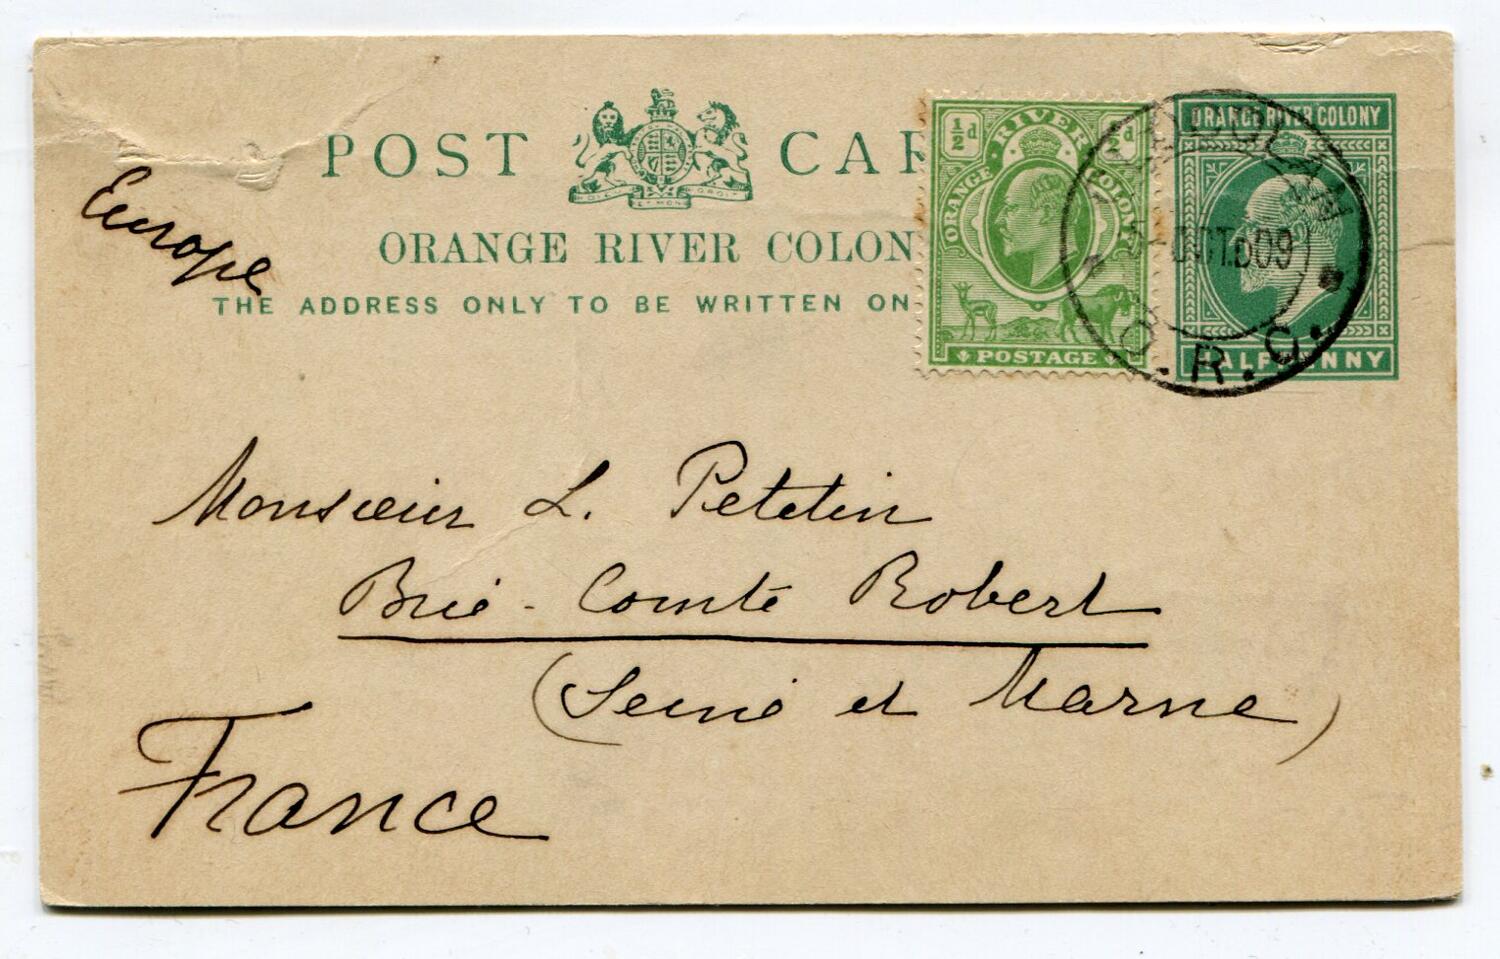 POST CAR
ORANGE RIVER COLON
THE ADDRESS ONLY TO BE WRITTEN ON
Europe
½d ½d
ORANGE RIVER COLONY
POSTAGE
ORANGE RIVER COLONY
HALFPENNY
OCT 09
O.R.C.
Monsieur L. Petitin
Brie-Comte Robert
(Seine et Marne)
France